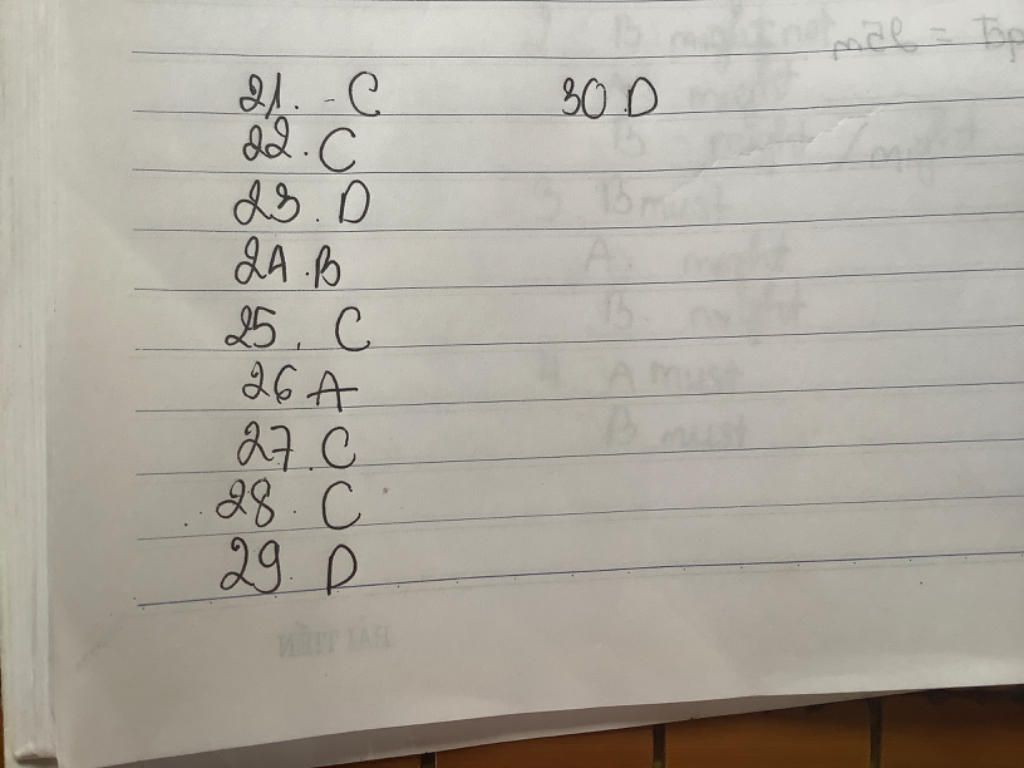 21. - C
30 D
22. C
23. D
24. B
25. C
26 A
27. C
28. C
29. D